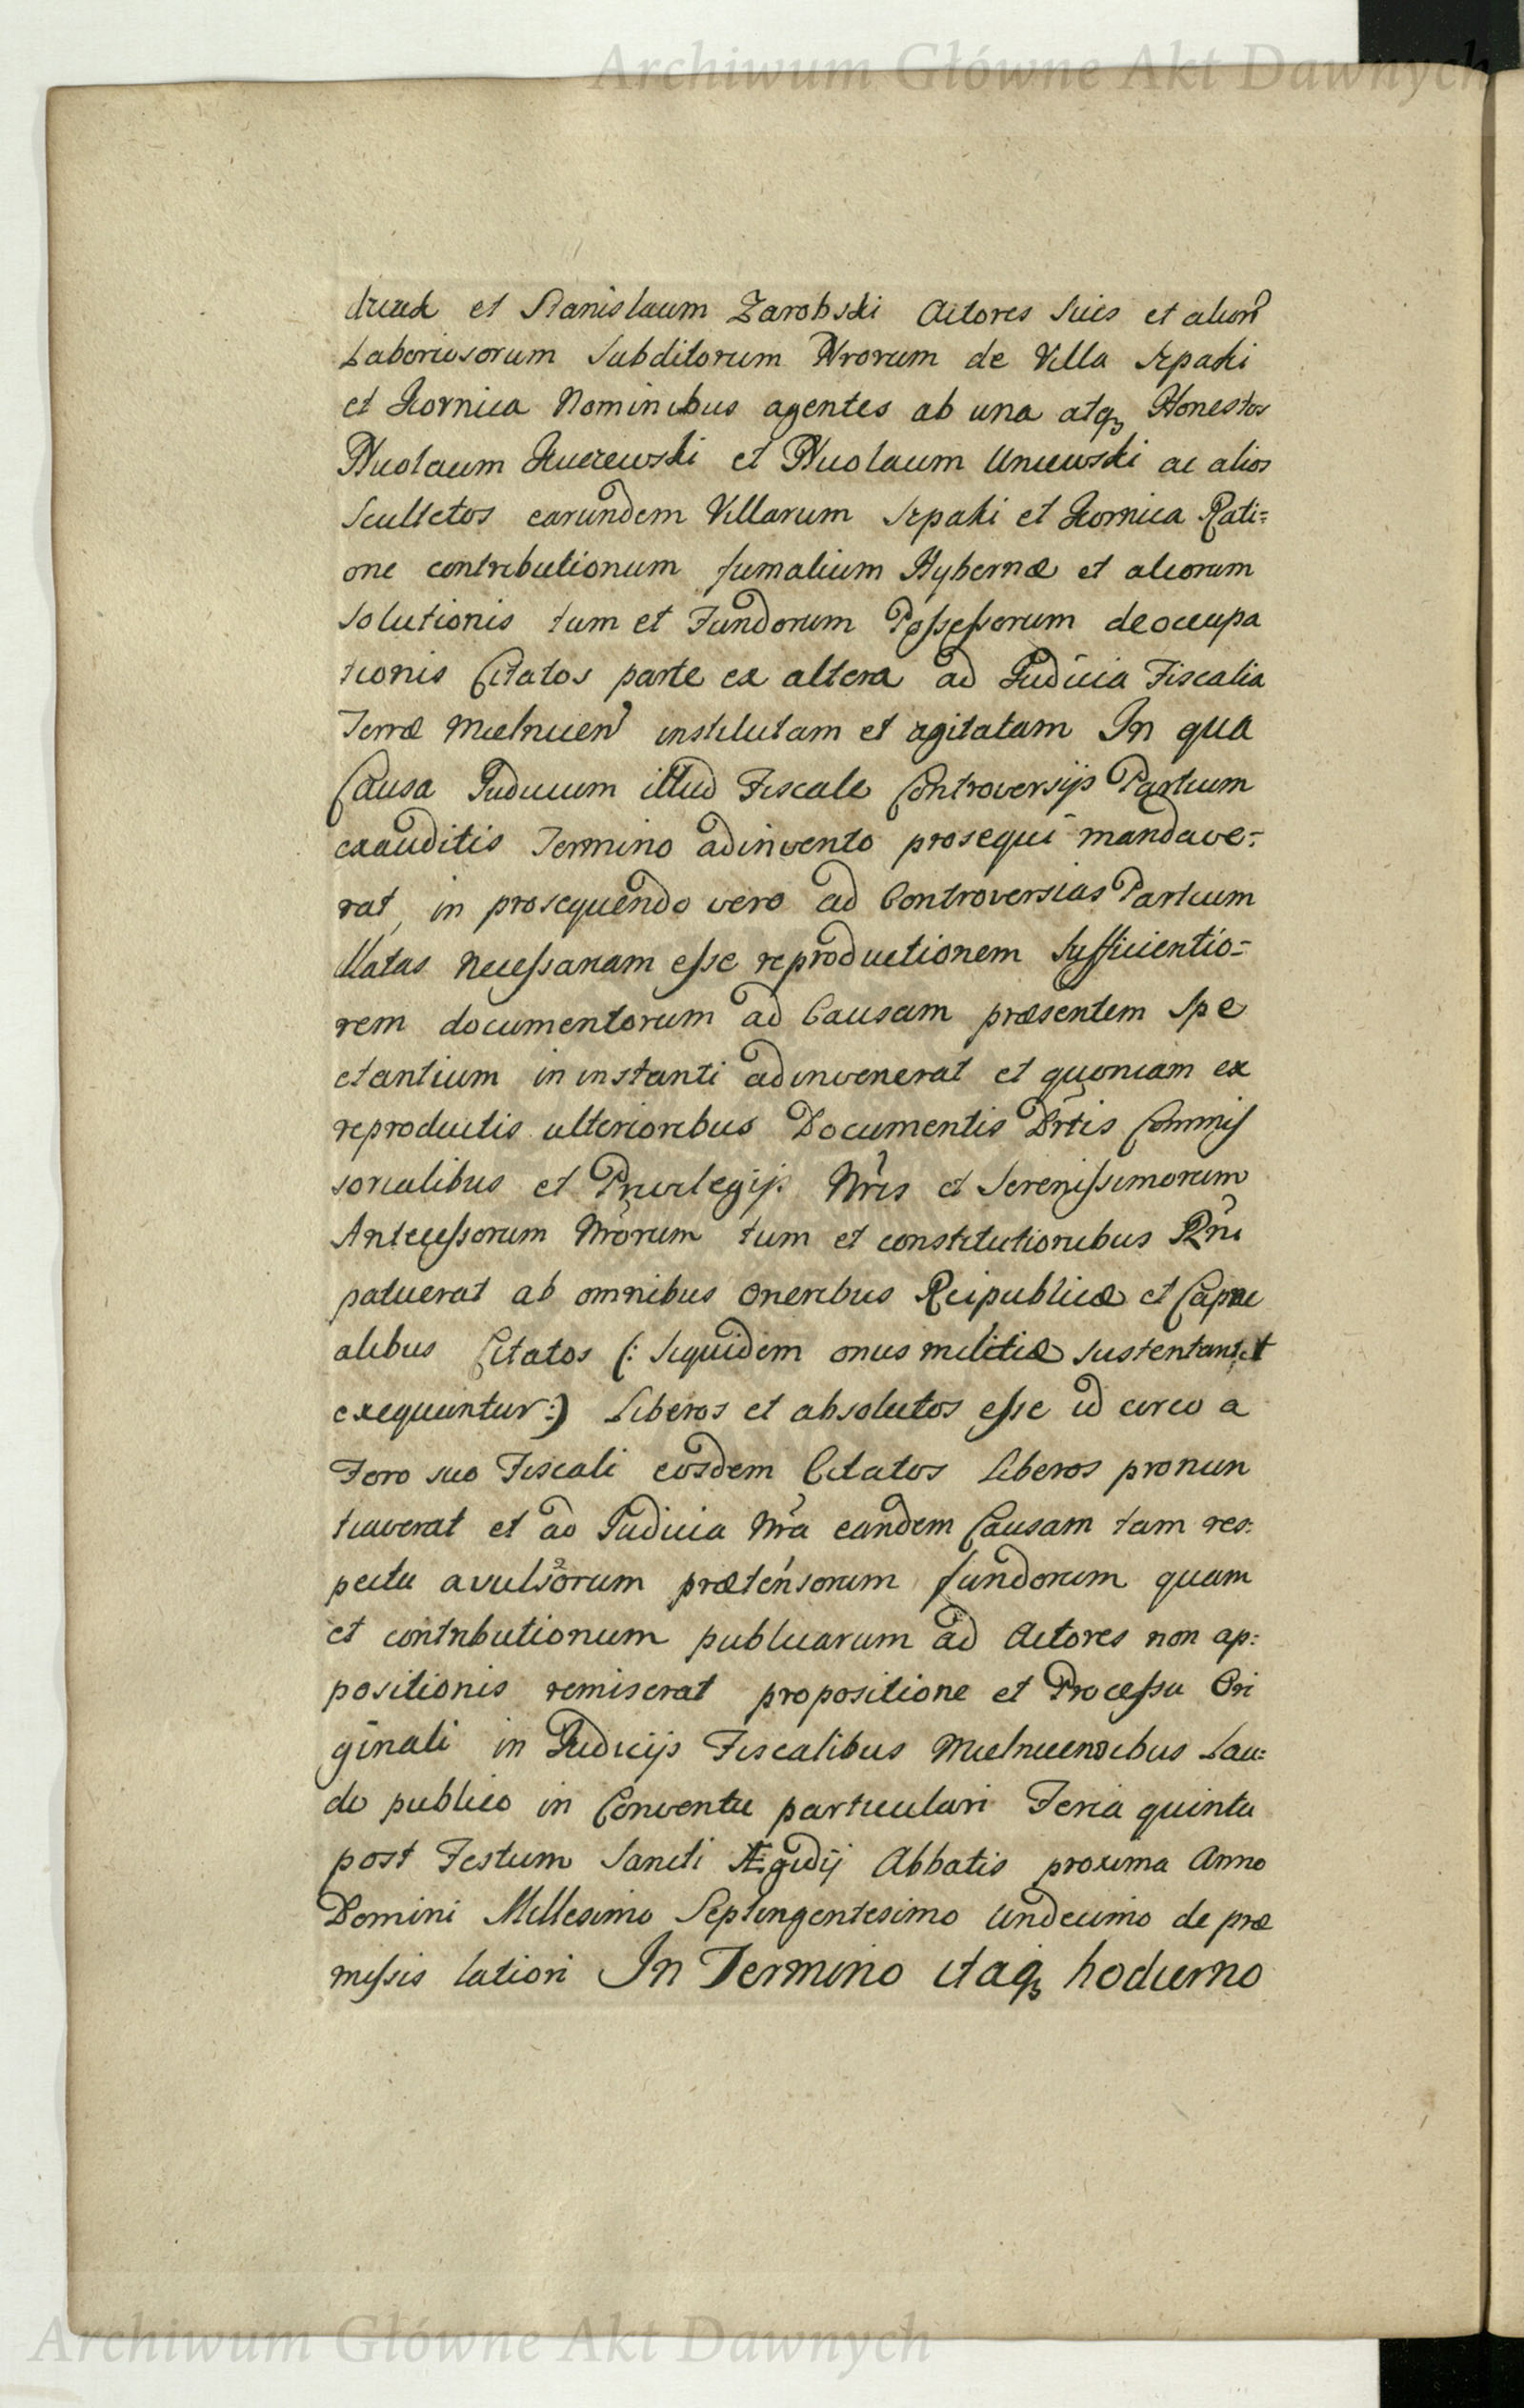 Archiwum Główne Akt Dawnych
et Stanislaum Zarobski Actores Suis et aliorũ
Laboriosorum Subditorum Nrorum de Villa Szpaki
et Kornica Nominibus agentes ab una atqꝫ Honestos
Nicolaum Kuczewski et Nicolaum Uniewski ac alios
Scultetos earundem Villarum Szpaki et Kornica Rati=
one contributionum fumalium Hybernæ et aliorum
Solutionis tum et Fundorum Possessorum deoccupa
tionis Citatos parte ex altera ad Judicia Fiscalia
Terræ Mielnicen̄ institutam et agitatam In qua
Causa Judicium illud Fiscale Controversijs Partium
exauditis Termino adinvento prosequi mandave=
rat, in prosequendo vero ad Controversias Partium
illatas necessariam esse reproductionem Sufficientio=
rem documentorum ad Causam præsentem Spe
ctantium in instanti adinvenerat et quoniam ex
reproductis ulterioribus Documentis Dr̄tis Commis
sorialibus et Privilegijs Nr̄is et Serenissimorum
Antecessorum Nr̄orum tum et constitutionibus Rn̄i
patuerat ab omnibus oneribus Reipublicæ et Capitu
alibus Citatos (: siquidem onus militiæ sustentant et
exequuntur :) Liberos et absolutos esse id circo a
Foro suo Fiscali eosdem Citatos liberos pronun
tiaverat et ad Judicia Nr̄a eandem Causam tam res=
pectu avulsorum prætensorum fundorum quam
et contributionum publicarum ad Actores non ap=
positionis remiserat propositione et Processu Ori
ginali in Judicijs Fiscalibus Mielnicensibus Lau=
do publico in Conventu particulari Feria quinta
post Festum Sancti Ægidij Abbatis proxima Anno
Domini Millesimo Septingentesimo Undecimo de præ
missis latiori In Termino itaqꝫ hodierno
Archiwum Główne Akt Dawnych